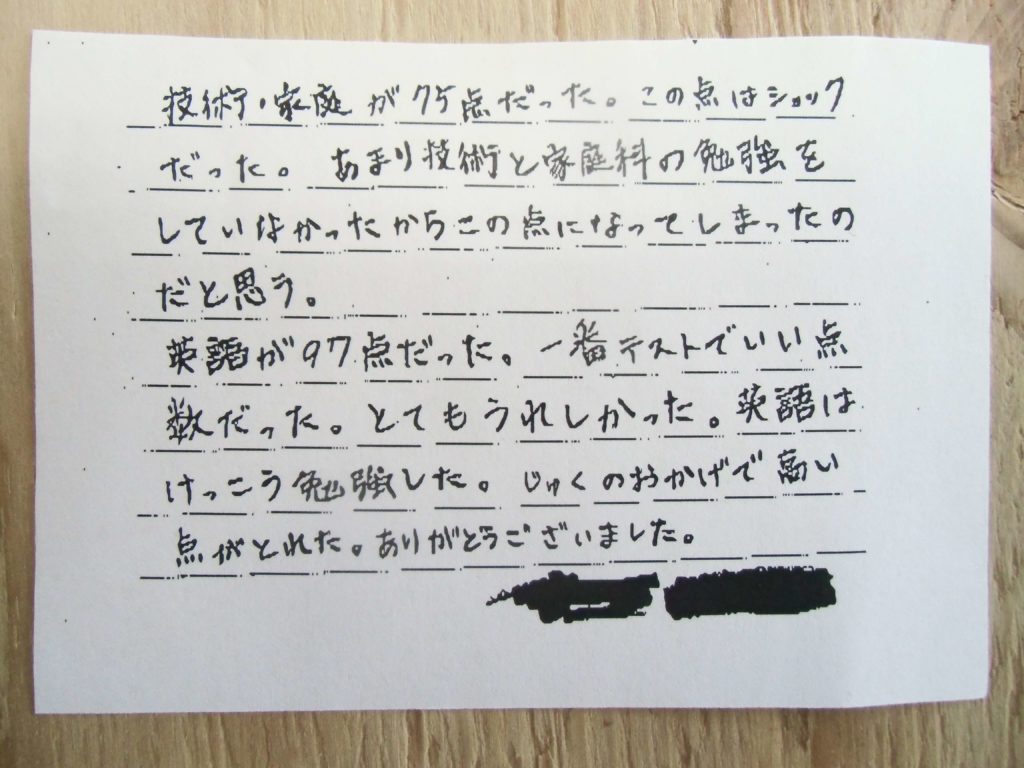 技術・家庭が75点だった。この点はショック
だった。あまり技術と家庭科の勉強を
していなかったからこの点になってしまったの
だと思う。
英語が97点だった。一番テストでいい点
数だった。とてもうれしかった。英語は
けっこう勉強した。じゅくのおかげで高い
点がとれた。ありがとうございました。